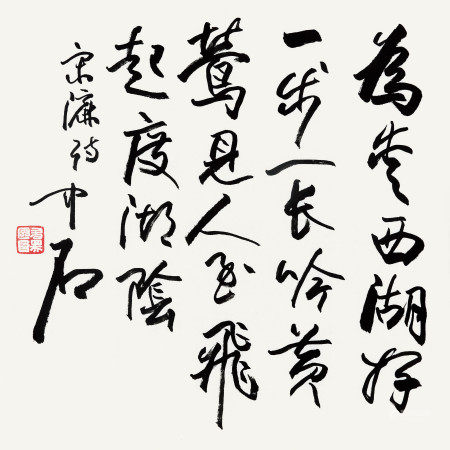 為愛西湖好
一步一長吟黄
鶯見人至飛
起度湖陰
宋濂詩
中石